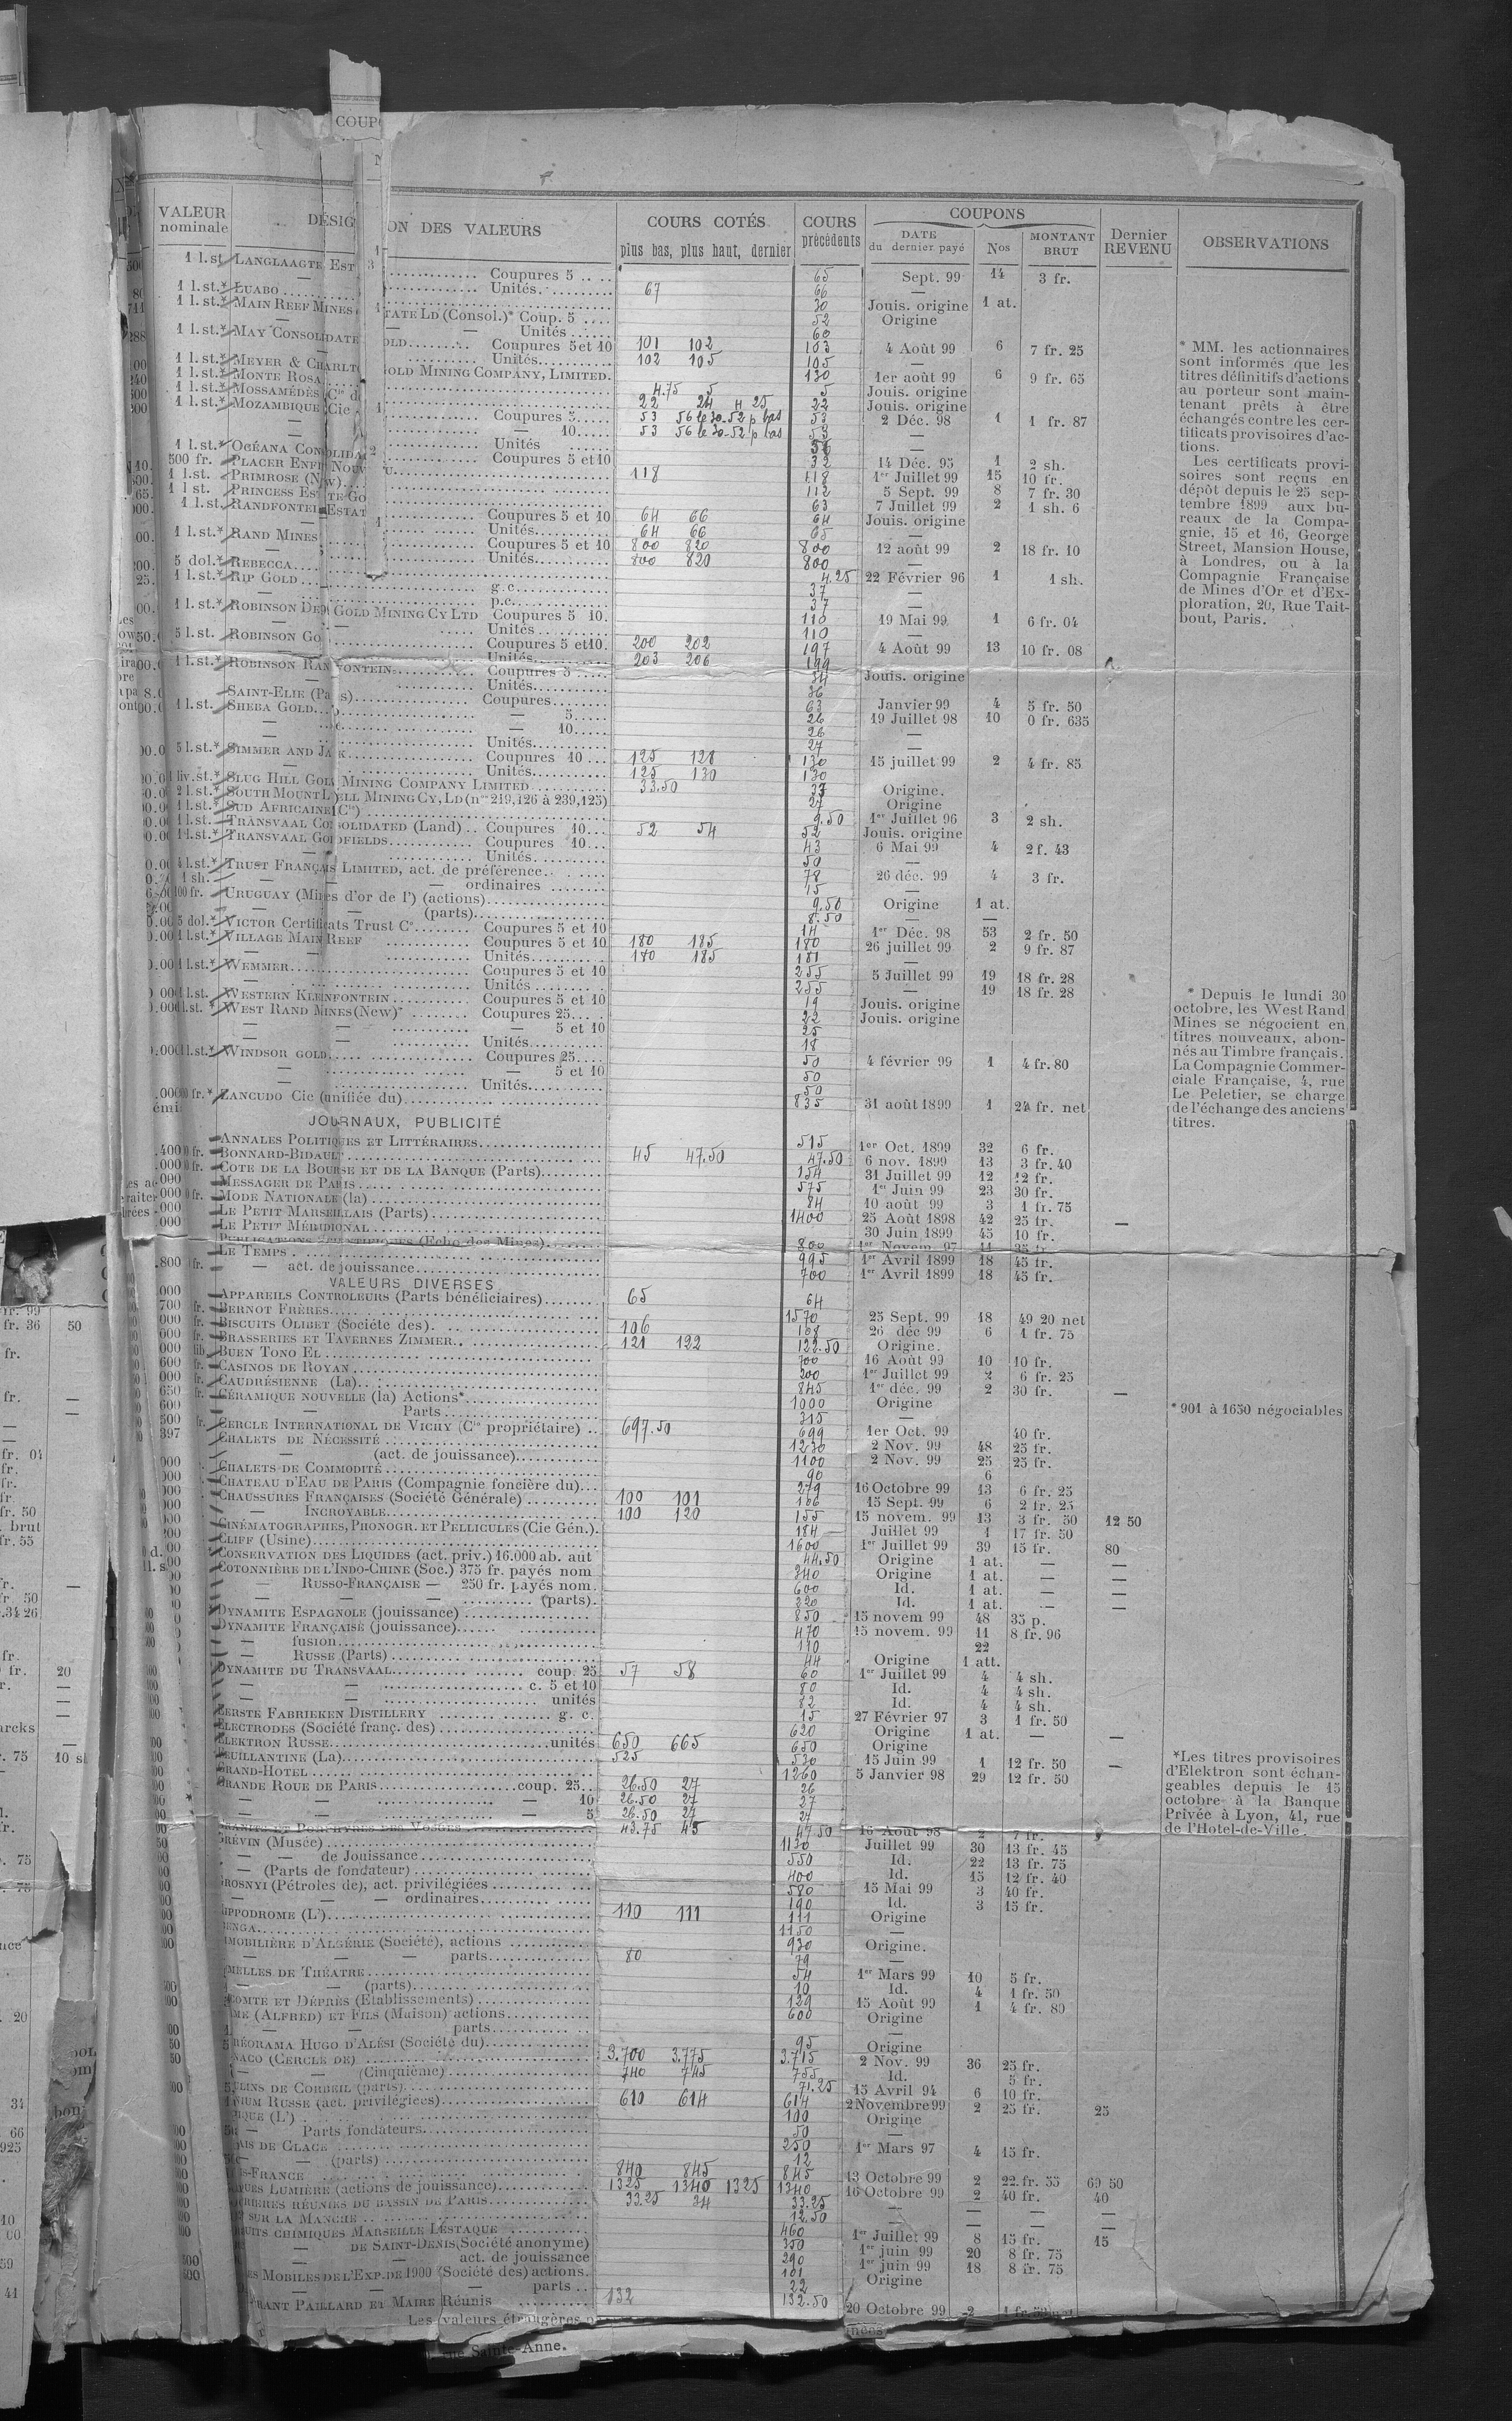 COUP
VALEUR nominale DÉSIG ON DES VALEURS COURS COTÉS plus bas, plus haut, dernier COURS précédents COUPONS DATE du dernier payé Nos MONTANT BRUT Dernier REVENU OBSERVATIONS
1 l.st LANGLAAGTE EST Coupures 5 65 Sept. 99 14 3 fr.
Unités 67 66 —
1 l.st.* LUABO 30 Jouis. origine 1 at.
1 l.st.* MAIN REEF MINES TATE LD (Consol.)* Coup. 5 52 Origine
— — Unités 60
1 l.st.* MAY CONSOLIDATE OLD Coupures 5 et 10 101 102 103 4 Août 99 6 7 fr. 25
Unités 102 105 105 —
1 l.st.* MEYER & CHARLT GOLD MINING COMPANY, LIMITED. 130 1er août 99 6 9 fr. 65
1 l.st.* MONTE ROSA 4.75 5 5 Jouis. origine
1 l.st.* MOSSAMÉDÈS (Cie d 22 24 H 25 22 Jouis. origine
1 l.st.* MOZAMBIQUE (Cie Coupures 5 53 56 le 30-52 p bas 53 2 Déc. 98 1 1 fr. 87
— 10 53 56 le 30-52 p bas 53 —
— Unités —
1 l.st.* OCÉANA CONSOLIDA Coupures 5 et 10 32 14 Déc. 95 1 2 sh.
500 fr. PLACER ENFIN NOUV U 118 118 1er Juillet 99 15 10 fr.
1 l.st. PRIMROSE (New) 112 5 Sept. 99 8 7 fr. 30
1 l.st. PRINCESS ESTATE GO 63 7 Juillet 99 2 1 sh. 6
1 l.st. RANDFONTEIN ESTAT Coupures 5 et 10 64 66 64 Jouis. origine
Unités 64 66 65 —
1 l.st.* RAND MINES Coupures 5 et 10 800 820 800 12 août 99 2 18 fr. 10
— Unités 800 820 800 —
5 dol.* REBECCA 4.25 22 Février 96 1 1 sh.
1 l.st.* RIP GOLD g. c. 37 —
— p.c. 37 —
1 l.st.* ROBINSON DEEP GOLD MINING CY LTD Coupures 5 10. 110 19 Mai 99 1 6 fr. 04
— Unités 110 —
5 l.st. ROBINSON GO Coupures 5 et 10. 200 202 197 4 Août 99 13 10 fr. 08
Unités 203 206 199
1 l.st.* ROBINSON RANDFONTEIN Coupures 5 34 Jouis. origine
Unités 36
SAINT-ELIE (Paris) Coupures 63 Janvier 99 4 5 fr. 50
1 l.st. SHEBA GOLD — 5 26 19 Juillet 98 10 0 fr. 635
— 10 26 —
— Unités 27 —
5 l.st.* SIMMER AND JACK Coupures 10 125 128 130 15 juillet 99 2 4 fr. 85
— Unités 125 130 130
1 liv.st.* SLUG HILL GOLD MINING COMPANY LIMITED 33.50 Origine.
2 l.st.* SOUTH MOUNT LYELL MINING CY, LD (nos 219,126 à 239,125) 27 Origine
1 l.st.* SUD AFRICAINE (Cie) 9.50 1er Juillet 96 3 2 sh.
1 l.st.* TRANSVAAL CONSOLIDATED (Land) Coupures 10 52 54 52 Jouis. origine
1 l.st.* TRANSVAAL GOLDFIELDS Coupures 10 43 6 Mai 99 4 2 f. 43
— Unités 50 —
4 l.st.* TRUST FRANÇAIS LIMITED, act. de préférence 78 26 déc. 99 4 3 fr.
1 sh. — — ordinaires 15 —
100 fr. URUGUAY (Mines d'or de l') (actions) 9.50 Origine 1 at.
— (parts) 8.50 — —
5 dol.* VICTOR Certificats Trust Co Coupures 5 et 10 14 1er Déc. 98 53 2 fr. 50
1 l.st.* VILLAGE MAIN REEF Coupures 5 et 10 180 185 180 26 juillet 99 2 9 fr. 87
— — Unités 170 185 181 —
1 l.st.* WEMMER Coupures 5 et 10 255 5 Juillet 99 19 18 fr. 28
— Unités 255 — 19 18 fr. 28
1 l.st. WESTERN KLEINFONTEIN Coupures 5 et 10 19 Jouis. origine
1 l.st. * WEST RAND MINES (New)* Coupures 25 22 Jouis. origine
— — 5 et 10 25
— — Unités 18
1 l.st.* WINDSOR GOLD Coupures 25 50 4 février 99 1 4 fr. 80
— — 5 et 10 50
— Unités 50
fr.* ZANCUDO Cie (unifiée du) 835 31 août 1899 1 24 fr. net
JOURNAUX, PUBLICITÉ
ANNALES POLITIQUES ET LITTÉRAIRES 515 1er Oct. 1899 32 6 fr.
BONNARD-BIDAULT 45 47.50 47.50 6 nov. 1899 13 3 fr. 40
COTE DE LA BOURSE ET DE LA BANQUE (Parts) 154 31 Juillet 99 12 12 fr.
MESSAGER DE PARIS 575 1er Juin 99 23 30 fr.
MODE NATIONALE (la) 84 10 août 99 3 1 fr. 75
LE PETIT MARSEILLAIS (Parts) 1400 25 Août 1898 42 25 fr. —
LE PETIT MÉRIDIONAL 30 Juin 1899 45 10 fr.
PUBLICATIONS SCIENTIFIQUES (Echo des Mines) 800 1er Novem. 97 11 25 fr.
LE TEMPS 995 1er Avril 1899 18 45 fr.
— act. de jouissance 700 1er Avril 1899 18 45 fr.
VALEURS DIVERSES
APPAREILS CONTROLEURS (Parts bénéficiaires) 65 64
BERNOT FRÈRES 1570 25 Sept. 99 18 49 20 net
BISCUITS OLIBET (Société des) 106 108 26 déc 99 6 1 fr. 75
BRASSERIES ET TAVERNES ZIMMER 121 122 122.50 Origine.
BUEN TONO EL 700 16 Août 99 10 10 fr.
CASINOS DE ROYAN 200 1er Juillet 99 2 6 fr. 25
CAUDRÉSIENNE (La) 845 1er déc. 99 2 30 fr. —
CÉRAMIQUE NOUVELLE (la) Actions* 1000 Origine
— Parts 315 —
CERCLE INTERNATIONAL DE VICHY (Cie propriétaire) 697.50 699 1er Oct. 99 40 fr.
CHALETS DE NÉCESSITÉ 1230 2 Nov. 99 48 25 fr.
— (act. de jouissance) 1100 2 Nov. 99 25 25 fr.
CHALETS DE COMMODITÉ 90 6
CHATEAU D'EAU DE PARIS (Compagnie foncière du) 279 16 Octobre 99 13 6 fr. 25
CHAUSSURES FRANÇAISES (Société Générale) 100 101 106 15 Sept. 99 6 2 fr. 25
— INCROYABLE 100 120 155 15 novem. 99 13 3 fr. 50 12 50
CINÉMATOGRAPHES, PHONOGR. ET PELLICULES (Cie Gén.). 184 Juillet 99 1 17 fr. 50
CLIFF (Usine) 1600 1er Juillet 99 39 15 fr. 80
CONSERVATION DES LIQUIDES (act. priv.) 16.000 ab. aut 44.50 Origine 1 at. — —
COTONNIÈRE DE L'INDO-CHINE (Soc.) 375 fr. payés nom 340 Origine 1 at. — —
— RUSSO-FRANÇAISE — 250 fr. payés nom. 600 Id. 1 at. — —
— — — (parts). 220 Id. 1 at. — —
DYNAMITE ESPAGNOLE (jouissance) 850 15 novem 99 48 35 p.
DYNAMITE FRANÇAISE (jouissance) 470 15 novem. 99 11 8 fr. 96
— fusion 110 22
— RUSSE (Parts) 44 Origine 1 att.
DYNAMITE DU TRANSVAAL coup. 25 57 58 60 1er Juillet 99 4 4 sh.
— — c. 5 et 10 80 Id. 4 4 sh.
— — unités 82 Id. 4 4 sh.
EERSTE FABRIEKEN DISTILLERY g. c. 15 27 Février 97 3 1 fr. 50
ELECTRODES (Société franç. des) 620 Origine 1 at. — —
ELEKTRON RUSSE unités 650 665 650 Origine
FEUILLANTINE (La) 525 530 15 Juin 99 1 12 fr. 50 —
GRAND-HOTEL 1260 5 Janvier 98 29 12 fr. 50
GRANDE ROUE DE PARIS coup. 25 26.50 27 26
— — — 10 26.50 27 27
— — — 5 26.50 27 27
GRANITS ET PORPHYRES DES VOSGES 43.75 45 47.50 15 Août 98 2 7 fr.
GRÉVIN (Musée) 1130 Juillet 99 30 13 fr. 45
— — de Jouissance 550 Id. 22 13 fr. 75
— (Parts de fondateur) 400 Id. 15 12 fr. 40
GROSNYI (Pétroles de), act. privilégiées 580 15 Mai 99 3 40 fr.
— — ordinaires 190 Id. 3 15 fr.
HIPPODROME (L') 110 111 111 Origine
1150 —
IMMOBILIÈRE D'ALGÉRIE (Société), actions 930 Origine.
— — parts 80 79 —
JUMELLES DE THÉATRE 54 1er Mars 99 10 5 fr.
— (parts) 10 Id. 4 1 fr. 50
LECOMTE ET DÉPRÈS (Etablissements) 129 15 Août 99 1 4 fr. 80
(ALFRED) ET FILS (Maison) actions 600 Origine
— — parts —
MARÉORAMA HUGO D'ALÉSI (Société du) 95 Origine
MONACO (CERCLE DE) 3.700 3.775 3.715 2 Nov. 99 36 25 fr.
— (Cinquième) 740 745 755 Id. 5 fr.
MOULINS DE CORBEIL (parts) 71.25 15 Avril 94 6 10 fr.
OMNIUM RUSSE (act. privilégiées) 610 614 614 2 Novembre 99 2 25 fr. 25
(L') 100 Origine
— Parts fondateurs 50 —
PALAIS DE GLACE 250 1er Mars 97 4 15 fr.
— (parts) 12
PARIS-FRANCE 840 845 845 13 Octobre 99 2 22 fr. 55 69 50
PLAQUES LUMIÈRE (actions de jouissance) 1325 1340 1325 1340 16 Octobre 99 2 40 fr. 40
RIÈRES RÉUNIES DU BASSIN DE PARIS 33.25 34 33.25 — — — —
SUR LA MANCHE 12.50 — — — —
PRODUITS CHIMIQUES MARSEILLE LESTAQUE 460 1er Juillet 99 8 15 fr. 15
— DE SAINT-DENIS (Société anonyme) 350 1er juin 99 20 8 fr. 75
— — act. de jouissance 290 1er juin 99 18 8 fr. 75
ES MOBILES DE L'EXP. DE 1900 (Société des) actions. 101 Origine
— — — parts 22
RANT PAILLARD ET MAIRE Réunis 132 132.50 20 Octobre 99 2
Les valeurs étrangères
rue Sainte-Anne.
* MM. les actionnaires
sont informés que les
titres définitifs d'actions
au porteur sont main-
tenant prêts à être
échangés contre les cer-
tificats provisoires d'ac-
tions.
Les certificats provi-
soires sont reçus en
dépôt depuis le 25 sep-
tembre 1899 aux bu-
reaux de la Compa-
gnie, 15 et 16, George
Street, Mansion House,
à Londres, ou à la
Compagnie Française
de Mines d'Or et d'Ex-
ploration, 20, Rue Tait-
bout, Paris.
* Depuis le lundi 30
octobre, les West Rand
Mines se négocient en
titres nouveaux, abon-
nés au Timbre français.
La Compagnie Commer-
ciale Française, 4, rue
Le Peletier, se charge
de l'échange des anciens
titres.
* 901 à 1650 négociables
*Les titres provisoires
d'Elektron sont échan-
geables depuis le 15
octobre à la Banque
Privée à Lyon, 41, rue
de l'Hotel-de-Ville.